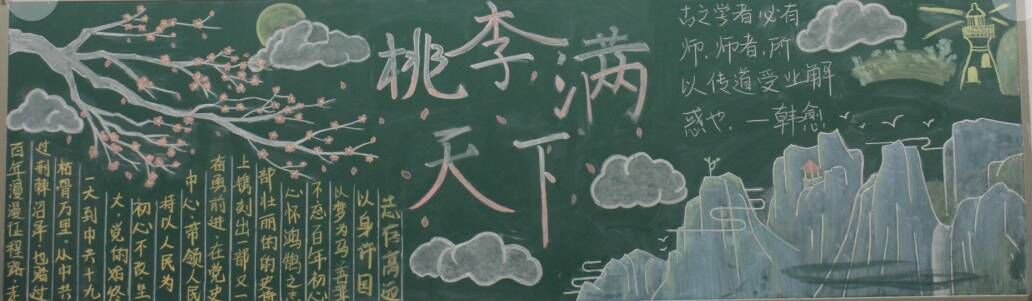 桃李满
天下
古之学者必有
师，师者，所
以传道受业解
惑也。—韩愈
百年漫漫征程路，走
过荆棘沼旱，也踏过
枯骨万里，从中共
一大到中共十九
大，党的始终
初心不改坚
持以人民为
中心，带领人民
前进，在党史
上镌刻出一部又一
部壮丽的的史诗
心怀鸿鹄之志
不忘百年初心
以梦为马
以身许国
志存高远